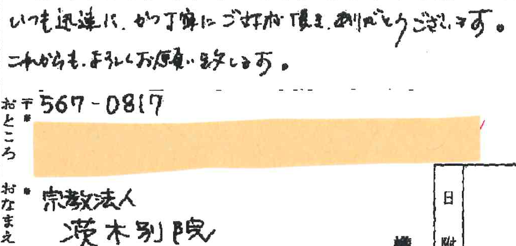 いつも迅速に、かつ丁寧にご対応頂き、ありがとうございます。
これからも、よろしくお願い致します。
〒567-0817
おところ
おなまえ
宗教法人
茨木別院
日附